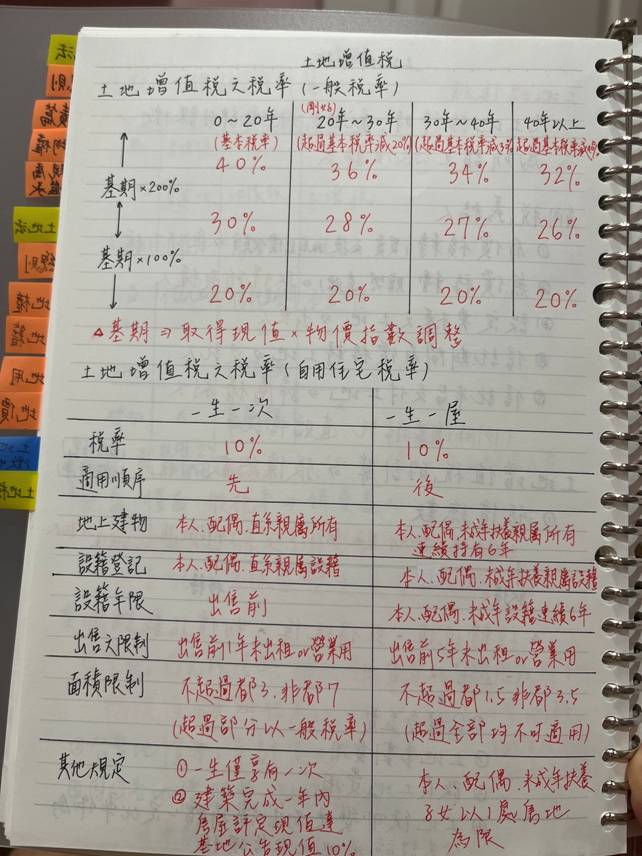 土地增值稅
土地增值稅之稅率(一般稅率)
0~20年 20年~30年 30年~40年 40年以上
(基本稅率) (超過基本稅率減20%) (超過基本稅率減3 超過基本稅率減
40% 36% 34% 32%
基期×200%
30% 28% 27% 26%
基期×100%
20% 20% 20% 20%
△基期⇒取得現值×物價指數調整
土地增值稅之稅率(自用住宅稅率)
一生一次 一生一屋
稅率 10% 10%
適用順序 先 後
地上建物 本人.配偶.直系親屬所有 本人.配偶.未成年扶養親屬所有
連續持有6年
設籍登記 本人.配偶.直系親屬設籍 本人.配偶.未成年扶養親屬設籍
設籍年限 出售前 本人.配偶.未成年設籍連續6年
出售之限制 出售前1年未出租or營業用 出售前5年未出租or營業用
面積限制 不超過都3.非都7 不超過都1.5非都3.5
(超過部分以一般稅率) (超過全部均不可適用)
其他規定 ①一生僅享有一次 本人.配偶.未成年扶養
②建築完成一年內 子女以1處房地
房屋評定現值達 為限
基地公告現值10%